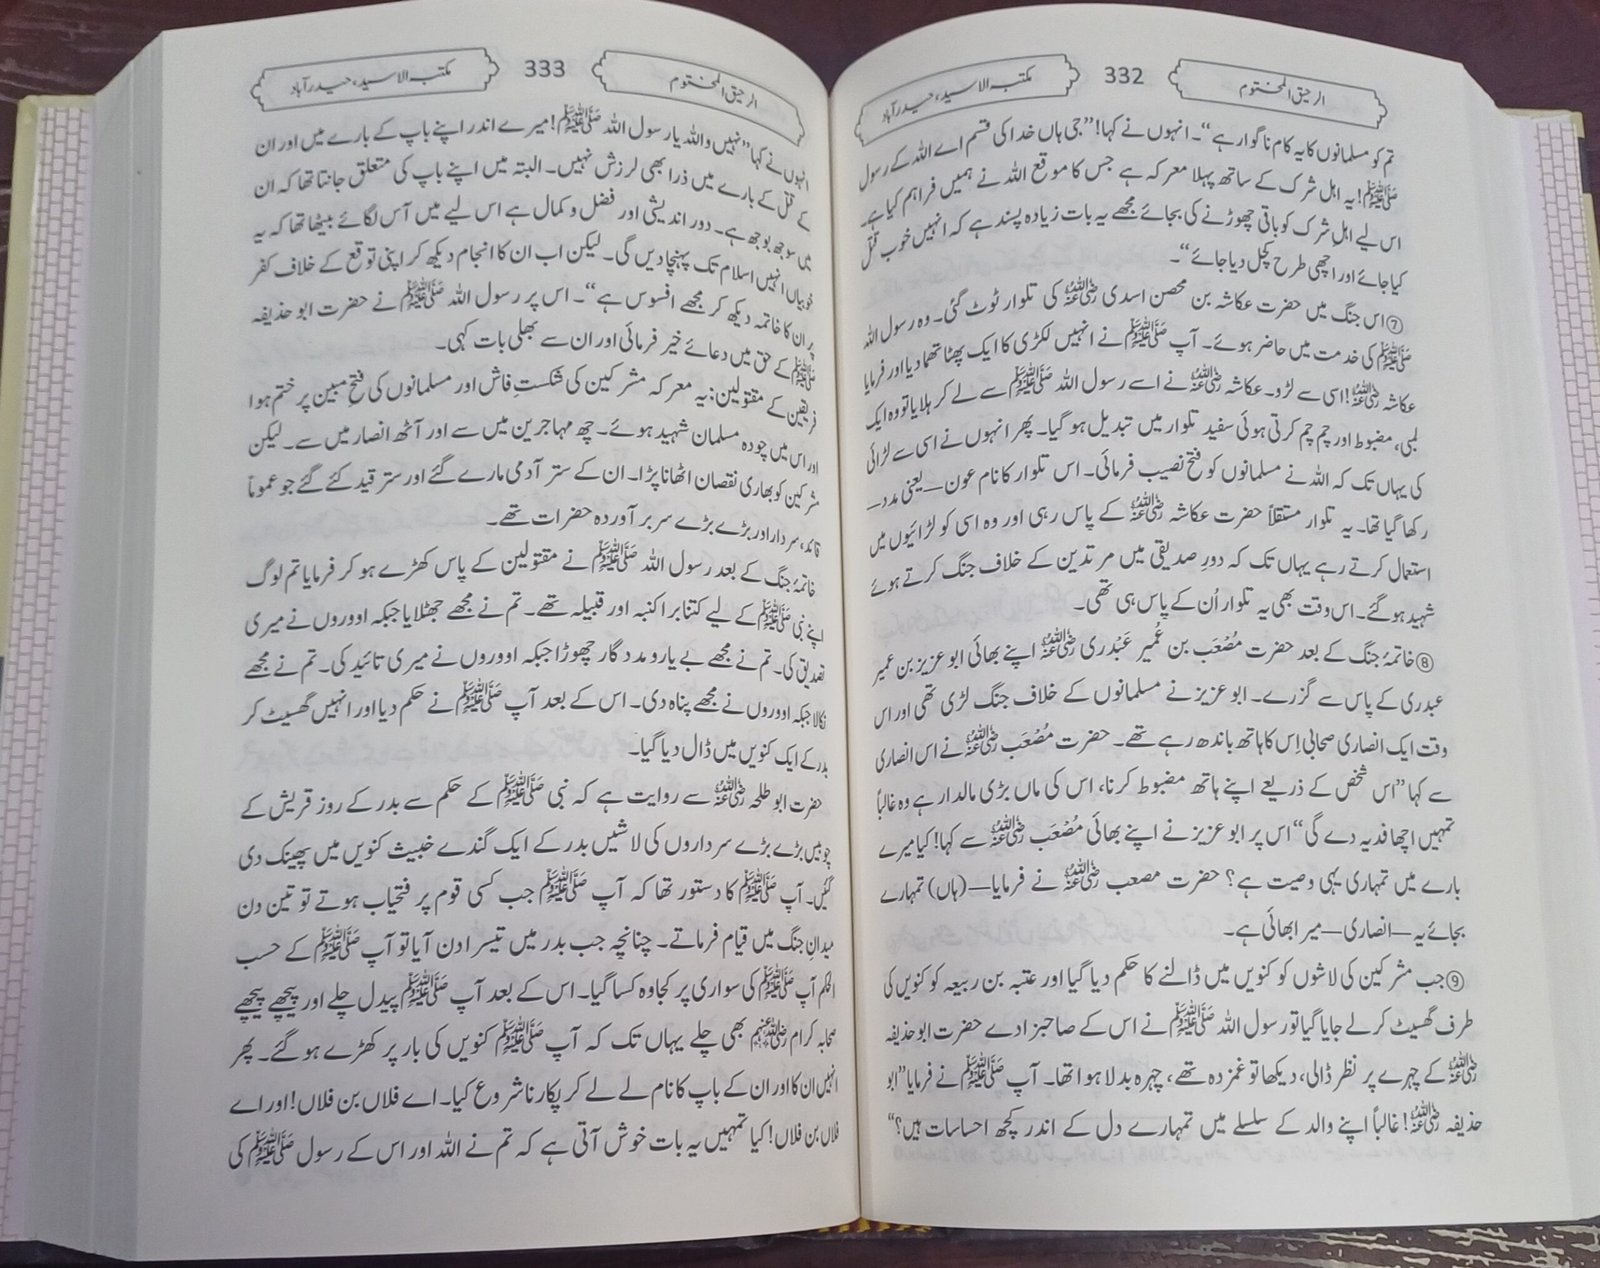 الرحیق المختوم
332
مکتبہ الاسید، حیدرآباد
تم کو مسلمانوں کا یہ کام ناگوار ہے“۔ انہوں نے کہا! ”جی ہاں خدا کی قسم اے اللہ کے رسول
ﷺ! یہ اہل شرک کے ساتھ پہلا معرکہ ہے جس کا موقع اللہ نے ہمیں فراہم کیا ہے۔
اس لیے اہل شرک کو باقی چھوڑنے کی بجائے مجھے یہ بات زیادہ پسند ہے کہ انہیں خوب قتل
کیا جائے اور اچھی طرح کچل دیا جائے“۔
⑦ اس جنگ میں حضرت عکاشہ بن محصن اسدی رضی اللہ عنہ کی تلوار ٹوٹ گئی۔ وہ رسول اللہ
ﷺ کی خدمت میں حاضر ہوئے۔ آپ ﷺ نے انہیں لکڑی کا ایک پھٹا تھما دیا اور فرمایا
عکاشہ رضی اللہ عنہ! اسی سے لڑو۔ عکاشہ رضی اللہ عنہ نے اسے رسول اللہ ﷺ سے لے کر ہلایا تو وہ ایک
لمبی، مضبوط اور چم چم کرتی ہوئی سفید تلوار میں تبدیل ہو گیا۔ پھر انہوں نے اسی سے لڑائی
کی یہاں تک کہ اللہ نے مسلمانوں کو فتح نصیب فرمائی۔ اس تلوار کا نام عون — یعنی مدد —
رکھا گیا تھا۔ یہ تلوار مستقلاً حضرت عکاشہ رضی اللہ عنہ کے پاس رہی اور وہ اسی کو لڑائیوں میں
استعمال کرتے رہے یہاں تک کہ دورِ صدیقی میں مرتدین کے خلاف جنگ کرتے ہوئے
شہید ہو گئے۔ اس وقت بھی یہ تلوار اُن کے پاس ہی تھی۔
⑧ خاتمۂ جنگ کے بعد حضرت مُصْعَب بن عُمیر عَبْدری رضی اللہ عنہ اپنے بھائی ابو عزیز بن عمیر
عبدری کے پاس سے گزرے۔ ابو عزیز نے مسلمانوں کے خلاف جنگ لڑی تھی اور اس
وقت ایک انصاری صحابی اِس کا ہاتھ باندھ رہے تھے۔ حضرت مُصْعَب رضی اللہ عنہ نے اس انصاری
سے کہا ”اس شخص کے ذریعے اپنے ہاتھ مضبوط کرنا، اس کی ماں بڑی مالدار ہے وہ غالباً
تمہیں اچھا فدیہ دے گی“ اس پر ابو عزیز نے اپنے بھائی مُصْعَب رضی اللہ عنہ سے کہا! کیا میرے
بارے میں تمہاری یہی وصیت ہے؟ حضرت مصعب رضی اللہ عنہ نے فرمایا — (ہاں) تمہارے
بجائے یہ — انصاری — میرا بھائی ہے۔
⑨ جب مشرکین کی لاشوں کو کنویں میں ڈالنے کا حکم دیا گیا اور عتبہ بن ربیعہ کو کنویں کی
طرف گھسیٹ کر لے جایا گیا تو رسول اللہ ﷺ نے اس کے صاحبزادے حضرت ابو حذیفہ
رضی اللہ عنہ کے چہرے پر نظر ڈالی، دیکھا تو غمزدہ تھے، چہرہ بدلا ہوا تھا۔ آپ ﷺ نے فرمایا ”ابو
حذیفہ رضی اللہ عنہ! غالباً اپنے والد کے سلسلے میں تمہارے دل کے اندر کچھ احساسات ہیں؟“
الرحیق المختوم
333
مکتبہ الاسید، حیدرآباد
انہوں نے کہا ”نہیں واللہ یا رسول اللہ ﷺ! میرے اندر اپنے باپ کے بارے میں اور ان
کے قتل کے بارے میں ذرا بھی لرزش نہیں۔ البتہ میں اپنے باپ کی متعلق جانتا تھا کہ ان
میں سوجھ بوجھ ہے۔ دور اندیشی اور فضل و کمال ہے اس لیے میں آس لگائے بیٹھا تھا کہ یہ
خوبیاں انہیں اسلام تک پہنچا دیں گی۔ لیکن اب ان کا انجام دیکھ کر اپنی توقع کے خلاف کفر
پر ان کا خاتمہ دیکھ کر مجھے افسوس ہے“۔ اس پر رسول اللہ ﷺ نے حضرت ابو حذیفہ
ﷺ کے حق میں دعائے خیر فرمائی اور ان سے بھلی بات کہی۔
فریقین کے مقتولین: یہ معرکہ مشرکین کی شکستِ فاش اور مسلمانوں کی فتحِ مبین پر ختم ہوا
اور اس میں چودہ مسلمان شہید ہوئے۔ چھ مہاجرین میں سے اور آٹھ انصار میں سے۔ لیکن
مشرکین کو بھاری نقصان اٹھانا پڑا۔ ان کے ستر آدمی مارے گئے اور ستر قید کئے گئے جو عموماً
قائد، سردار اور بڑے بڑے سربر آوردہ حضرات تھے۔
خاتمۂ جنگ کے بعد رسول اللہ ﷺ نے مقتولین کے پاس کھڑے ہو کر فرمایا تم لوگ
اپنے نبی ﷺ کے لیے کتنا برا کنبہ اور قبیلہ تھے۔ تم نے مجھے جھٹلایا جبکہ اوروں نے میری
تصدیق کی۔ تم نے مجھے بے یارو مددگار چھوڑا جبکہ اوروں نے میری تائید کی۔ تم نے مجھے
نکالا جبکہ اوروں نے مجھے پناہ دی۔ اس کے بعد آپ ﷺ نے حکم دیا اور انہیں گھسیٹ کر
بدر کے ایک کنویں میں ڈال دیا گیا۔
حضرت ابو طلحہ رضی اللہ عنہ سے روایت ہے کہ نبی ﷺ کے حکم سے بدر کے روز قریش کے
چوبیس بڑے بڑے سرداروں کی لاشیں بدر کے ایک گندے خبیث کنویں میں پھینک دی
گئیں۔ آپ ﷺ کا دستور تھا کہ آپ ﷺ جب کسی قوم پر فتحیاب ہوتے تو تین دن
میدانِ جنگ میں قیام فرماتے۔ چنانچہ جب بدر میں تیسرا دن آیا تو آپ ﷺ کے حسب
الحکم آپ ﷺ کی سواری پر کجاوہ کسا گیا۔ اس کے بعد آپ ﷺ پیدل چلے اور پیچھے پیچھے
صحابہ کرام رضی اللہ عنہم بھی چلے یہاں تک کہ آپ ﷺ کنویں کی بار پر کھڑے ہو گئے۔ پھر
انہیں ان کا اور ان کے باپ کا نام لے لے کر پکارنا شروع کیا۔ اے فلاں بن فلاں! اور اے
فلاں بن فلاں! کیا تمہیں یہ بات خوش آتی ہے کہ تم نے اللہ اور اس کے رسول ﷺ کی